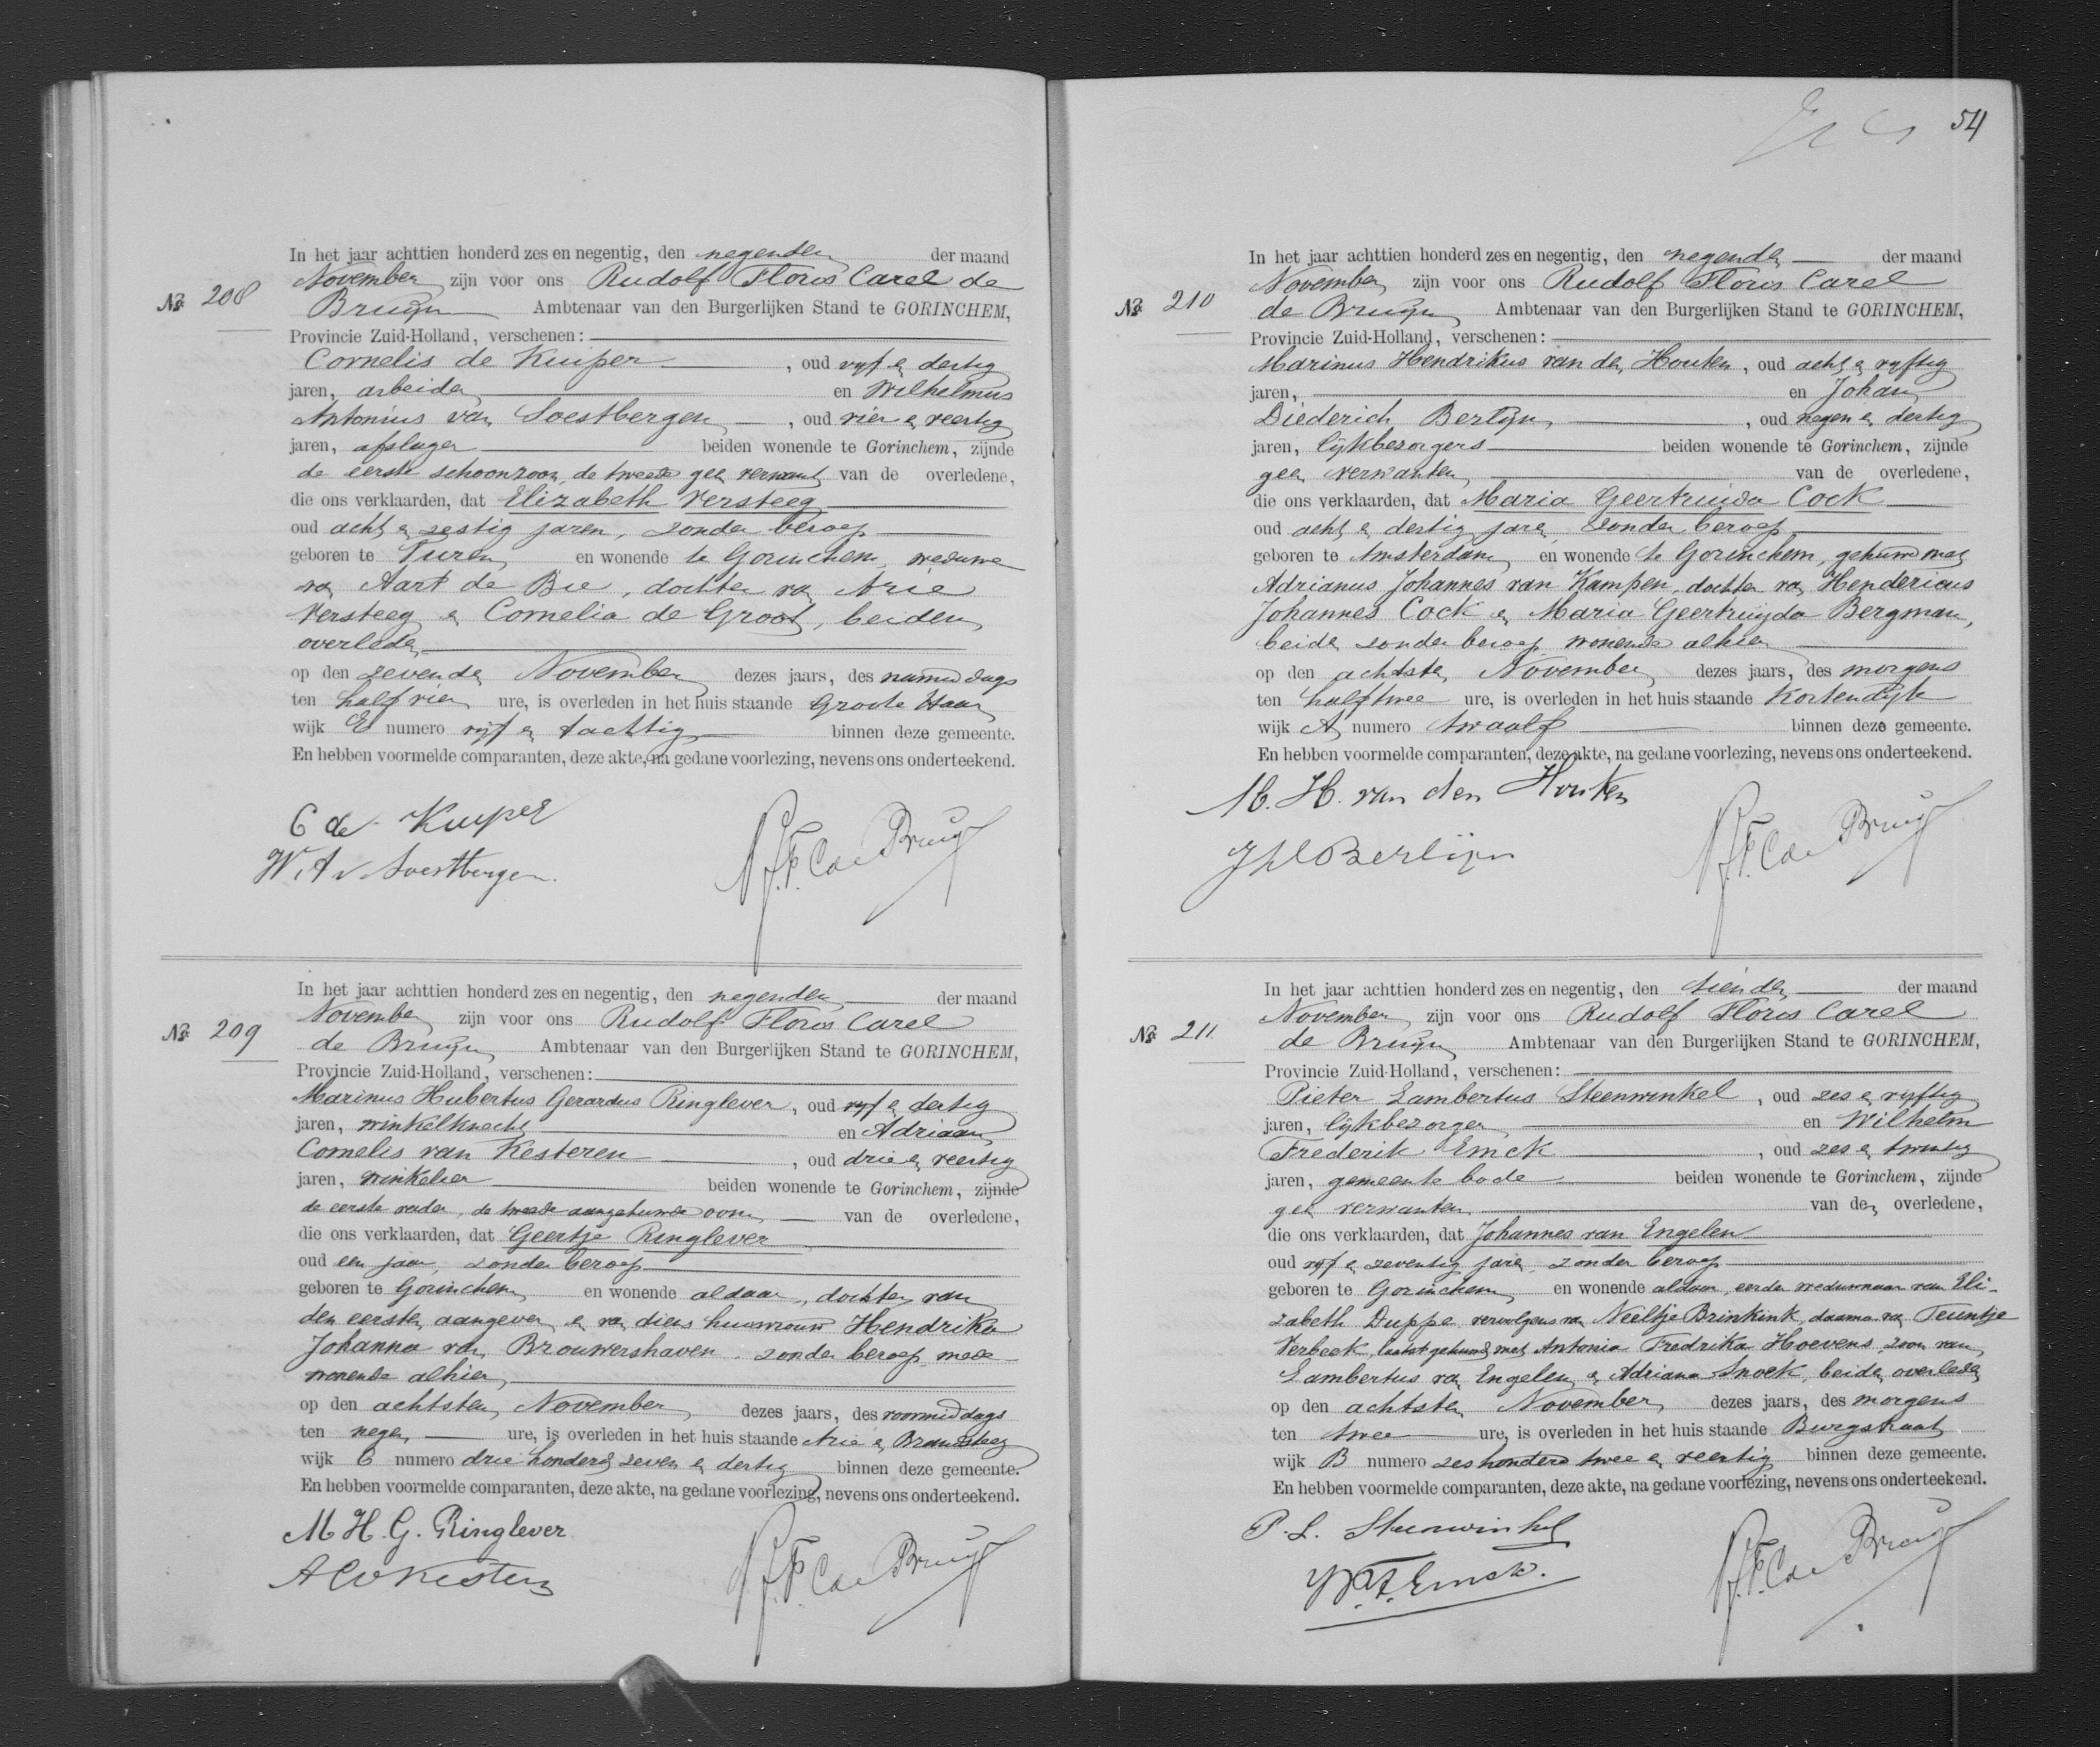 In het jaar achttien honderd zes en negentig, den negenden der maand
November zijn voor ons Rudolf Floris Carel de
No 208 Bruijn Ambtenaar van den Burgerlijken Stand te GORINCHEM,
Provincie Zuid-Holland, verschenen:
Cornelis de Kuiper, oud vijf en dertig
jaren, arbeider en Wilhelmus
Antonius van Soestbergen, oud vier en veertig
jaren, afslager beiden wonende te Gorinchem, zijnde
de eerste schoonzoon, de tweede geen verwant van de overledene,
die ons verklaarden, dat Elizabeth Versteeg
oud acht en zestig jaren, zonder beroep
geboren te Buren en wonende te Gorinchem, weduwe
van Aart de Bie, dochter van Arie
Versteeg en Cornelia de Groot, beiden
overleden,
op den zevenden November dezes jaars, des namiddags
ten half vier ure, is overleden in het huis staande Groote Haar
wijk E numero vijf en tachtig binnen deze gemeente.
En hebben voormelde comparanten, deze akte, na gedane voorlezing, nevens ons onderteekend.
C de Kuyper
W. A v Soestbergen.
R. F. C de Bruijn
In het jaar achttien honderd zes en negentig, den negenden der maand
November zijn voor ons Rudolf Floris Carel
No 209 de Bruijn Ambtenaar van den Burgerlijken Stand te GORINCHEM,
Provincie Zuid-Holland, verschenen:
Marinus Hubertus Gerardus Ringlever, oud vijf en dertig
jaren, winkelknecht en Adriaan
Cornelis van Kesteren, oud drie en veertig
jaren, winkelier beiden wonende te Gorinchem, zijnde
de eerste vader, de tweede aangehuwde oom, van de overledene,
die ons verklaarden, dat Geertje Ringlever
oud een jaar, zonder beroep
geboren te Gorinchem en wonende aldaar, dochter van
den eersten aangever en van diens huisvrouw Hendrika
Johanna van Brouwershaven, zonder beroep, mede
wonende alhier,
op den achtsten November dezes jaars, des voormiddags
ten negen ure, is overleden in het huis staande Arie en Brandsteeg
wijk C numero drie honderd zeven en dertig binnen deze gemeente.
En hebben voormelde comparanten, deze akte, na gedane voorlezing, nevens ons onderteekend.
M H. G. Ringlever
A C v Kesteren
R. F. C de Bruijn
54
In het jaar achttien honderd zes en negentig, den negenden der maand
November zijn voor ons Rudolf Floris Carel
No 210 de Bruijn Ambtenaar van den Burgerlijken Stand te GORINCHEM,
Provincie Zuid-Holland, verschenen:
Marinus Hendrikus van den Houten, oud acht en vijftig
jaren, en Johan
Diederich Berlijn, oud negen en dertig
jaren, lijkbezorgers beiden wonende te Gorinchem, zijnde
geen verwanten, van de overledene,
die ons verklaarden, dat Maria Geertruida Cock
oud acht en dertig jaren, zonder beroep
geboren te Amsterdam en wonende te Gorinchem, gehuwd met
Adrianus Johannes van Kampen, dochter van Hendericus
Johannes Cock en Maria Geertruijda Bergman,
beiden zonder beroep wonende alhier
op den achtsten November dezes jaars, des morgens
ten half twee ure, is overleden in het huis staande Kortendijk
wijk A numero twaalf binnen deze gemeente.
En hebben voormelde comparanten, deze akte, na gedane voorlezing, nevens ons onderteekend.
M. H. van den Houten
J D Berlijn
R. F. C de Bruijn
In het jaar achttien honderd zes en negentig, den tienden der maand
November zijn voor ons Rudolf Floris Carel
No 211 de Bruijn Ambtenaar van den Burgerlijken Stand te GORINCHEM,
Provincie Zuid-Holland, verschenen:
Pieter Lambertus Steenwinkel, oud zes en vijftig
jaren, lijkbezorger en Wilhelm
Frederik Emck, oud zes en twintig
jaren, gemeente bode beiden wonende te Gorinchem, zijnde
geen verwanten van den overledene,
die ons verklaarden, dat Johannes van Engelen
oud vijf en zeventig jaren, zonder beroep
geboren te Gorinchem, en wonende aldaar, eerder weduwnaar van Eli-
zabeth Duppe, vervolgens van Neeltje Brinkink, daarna van Teuntje
Verbeek, laatst gehuwd met Antonia Fredrika Hoevens, zoon van
Lambertus van Engelen en Adriana Snoek, beiden overleden
op den achtsten November dezes jaars, des morgens
ten twee ure, is overleden in het huis staande Burgstraat
wijk B numero zes honderd twee en veertig binnen deze gemeente.
En hebben voormelde comparanten, deze akte, na gedane voorlezing, nevens ons onderteekend.
P. L. Steenwinkel
W. F. Emck.
R. F. C de Bruijn